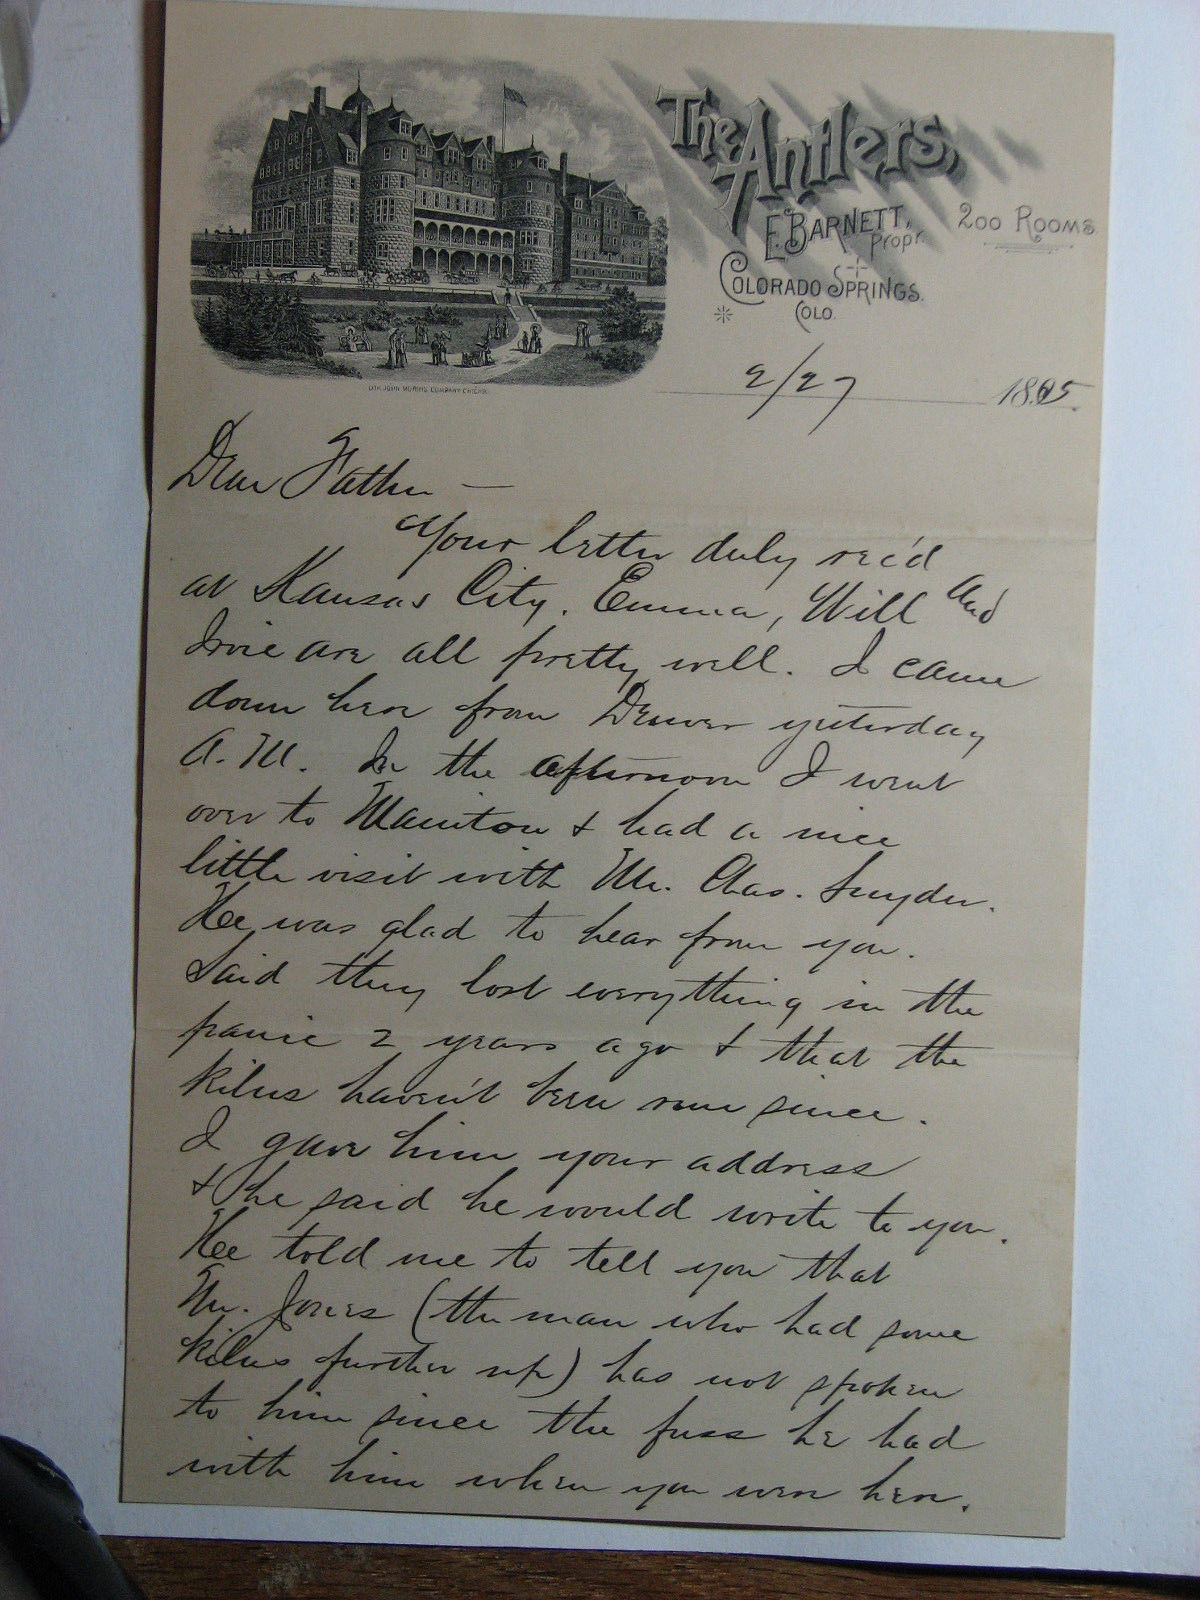 The Antlers,
E. BARNETT,
Propr.
200 ROOMS
COLORADO SPRINGS.
COLO.
LITH. JOHN MORRIS COMPANY CHICAGO
2/27 1895.
Dear Father —
Your letter duly rec'd
at Kansas City. Emma, Will and
Irvie are all pretty well. I came
down here from Denver yesterday
A.M. In the afternoon I went
over to Manitou & had a nice
little visit with Mr. Chas. Snyder.
He was glad to hear from you.
Said they lost everything in the
panic 2 years ago & that the
kilns haven't been run since.
I gave him your address
& he said he would write to you.
He told me to tell you that
Mr. Jones (the man who had some
kilns further up) has not spoken
to him since the fuss he had
with him when you were here.